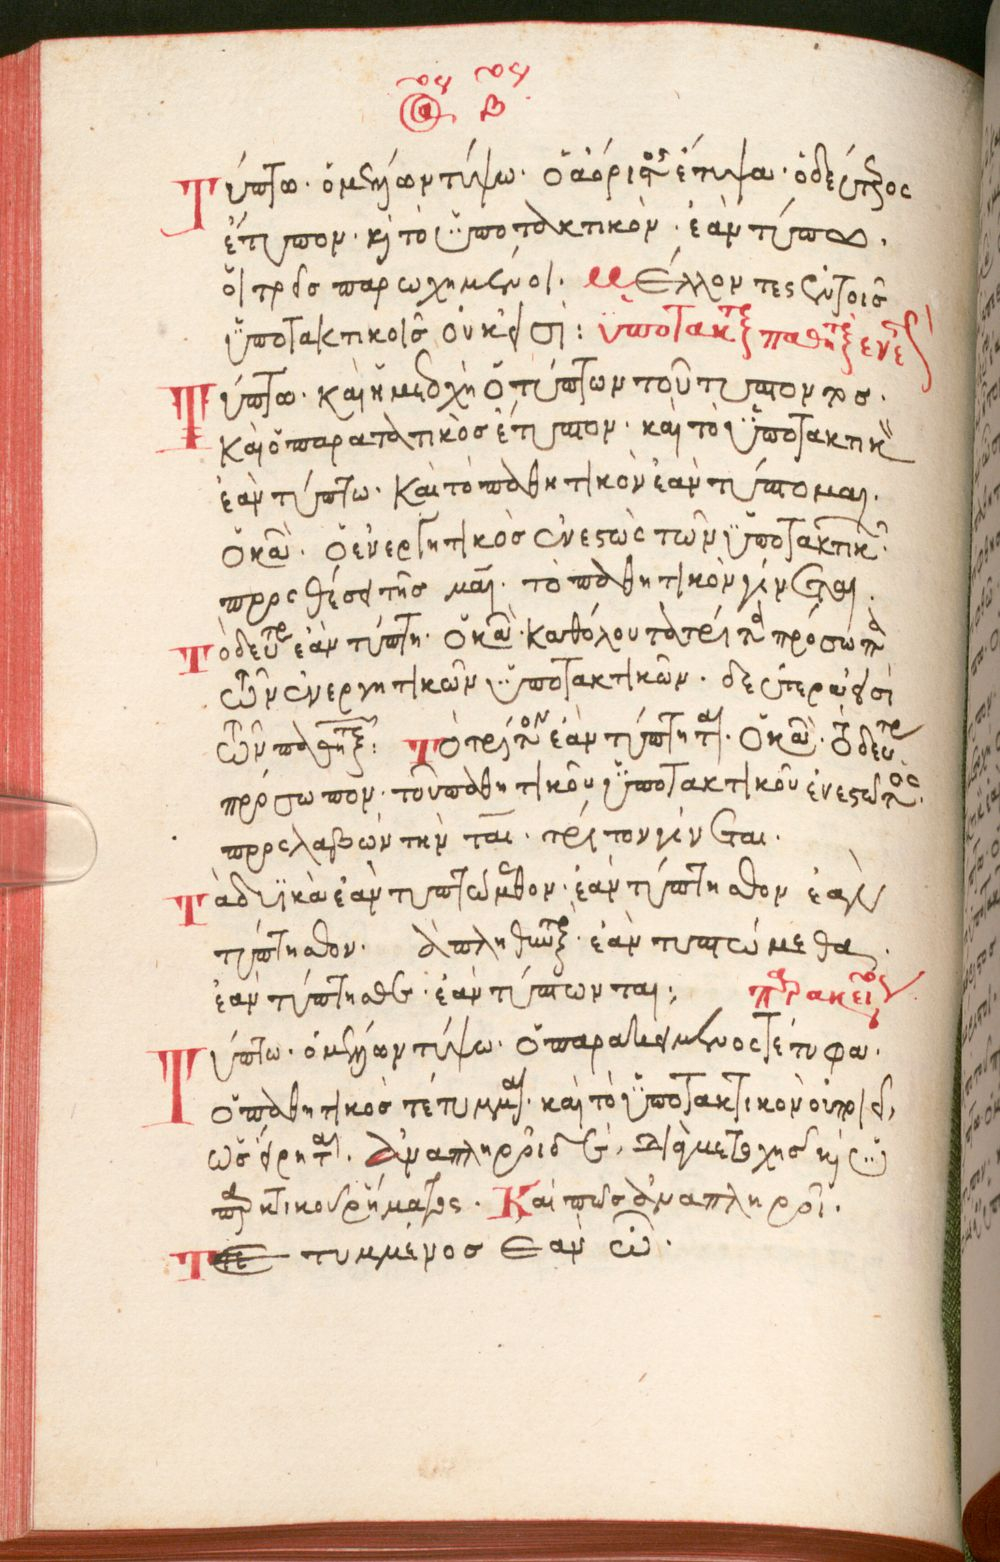 α β
Τύπτω· ὁ μέλλων τύψω· ὁ ἀόριστος ἔτυψα· ὁ δεύτερος
ἔτυπον· κ τὸ ὑποτακτικὸν· ἐὰν τύπω·
οἱ παρωχημένοι· μέλλοντες τοῖς
ὑποτακτικοῖς οὐκ εἰσι: ὑποτακτ παθητ ἐνε
Τύπτω· καὶ ἡ μετοχὴ ὁ τύπτων τοῦ τύπτοντος·
καὶ ὁ παρατατικὸς ἔτυπτον· καὶ τὸ ὑποτακτικ
ἐὰν τύπτω· καὶ τὸ παθητικὸν ἐὰν τύπτωμαι·
ὁ κανὼ· ὁ ἐνεργητικὸς ἐνεστὼς τῶν ὑποτακτικ·
προσθέσει τῆς μαι· τὸ παθητικὸν γίνεται·
Τὸ δευτρ ἐὰν τύπτη· ὁ κανὼ· καθόλου τὰ τρίτα πρόσωπα
τῶν ἐνεργητικῶν ὑποτακτικῶν· δεύτερα εἰσὶ
τῶν παθητ: Τὸ τρίτον ἐὰν τύπτηται· ὁ κανὼ· τὸ δευτρ
πρόσωπον· τοῦ παθητικοῦ ὑποτακτικοῦ ἐνεστῶτος·
προσλαβὼν τὴν ται· τρίτον γίνεται·
Τὰ δυϊκὰ ἐὰν τυπτώμεθον· ἐὰν τύπτησθον ἐὰν
τύπτησθον· τὰ πληθυντ· ἐὰν τυπτώμεθα·
ἐὰν τύπτησθε· ἐὰν τύπτωνται: παρακει
Τύπτω· ὁ μέλλων τύψω· ὁ παρακείμενος τέτυφα·
ὁ παθητικὸς τέτυμμαι· καὶ τὸ ὑποτακτικὸν οὐ
ὡς εἴρηται· ἀναπληροῦται δὲ, διὰ μετοχῆς κ
ῥήματος· Καὶ πῶς ἀναπληροῖ·
Τετυμμένος ἐὰν ὦ·